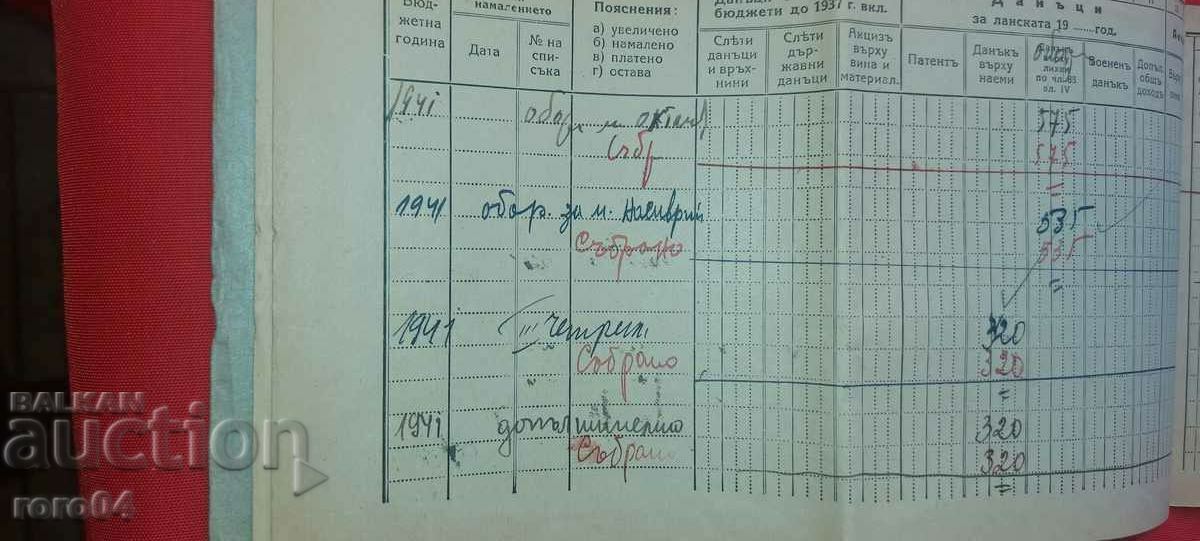 Бюд-
жетна
година
намалението
Дата
№ на
спи-
съка
Пояснения:
а) увеличено
б) намалено
в) платено
г) остава
бюджети до 1937 г. вкл.
Слѣти
данъци
и връх-
нини
Слѣти
дър-
жавни
данъци
Акцизъ
върху
вина и
материал.
Данъци
за ланската 19 ......год.
Патентъ
Данъкъ
върху
наеми
по чл. 63
ал. IV
Воененъ
данъкъ
Допъл.
общъ
доходъ
1941 575
Събр 575
=
1941 обор. за м. Ноемврий 535
Събрано 535
=
1941 III 320
Събрано 320
=
1941 допълнително 320
Събрано 320
=
BALKAN
auction
roro04